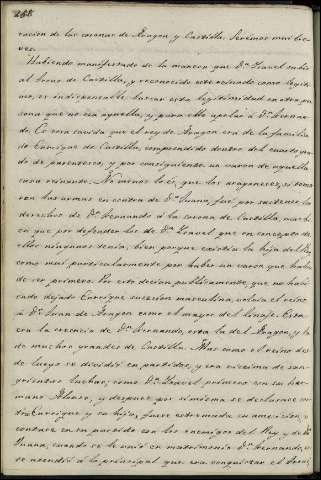 268
racion de las coronas de Aragon y Castilla. Seremos mui bre-
ves.
Habiendo manifestado de la manera que Dª Isavel subió
al trono de Castilla, y reconocido este reinado como legiti-
mo, es indispensable buscar esta legitimidad en otra per-
sona que no sea aquella; y, para ello apelar á Dn. Fernan-
do. Cosa savida que el rey de Aragon era de la familia
de Enrique de Castilla, comprendido dentro del cuarto gra-
do de parentesco, y por consiguiente un varon de aquella
casa reinante. No menos lo és, que los aragoneses, si toma-
ron las armas en contra de Dª Juana, fué por sostener los
derechos de Dn. Fernando á la corona de Castilla, mas bi-
en que por defender los de Dª Isavel que en concepto de
ellos ningunos tenia; bien porque existia la hija del Rey,
como mui particularmente por haber un varon que habia
de ser primero. Por esto decian publicamente, que no habi-
endo dejado Enrique sucesion masculina, volvia el reino
á Dn. Juan de Aragon como el mayor del linaje. Esta
era la creencia de Dn. Fernando, esta la del Aragon, y la
de muchos grandes de Castilla. Mas como el reino des-
de luego se dividió en partidos, y era victima de san-
grientas luchas; como Dª Isavel primero con su her-
mano Alonso, y despues por si misma se declarase con-
tra Enrique y su hija, fuese estremada su ambicion, y
contase en su partido con los enemigos del Rey y de Dª
Juana, cuando se le unió en matrimonio Dn. Fernando, so-
lo se atendió a lo principal que era conquistar el trono,